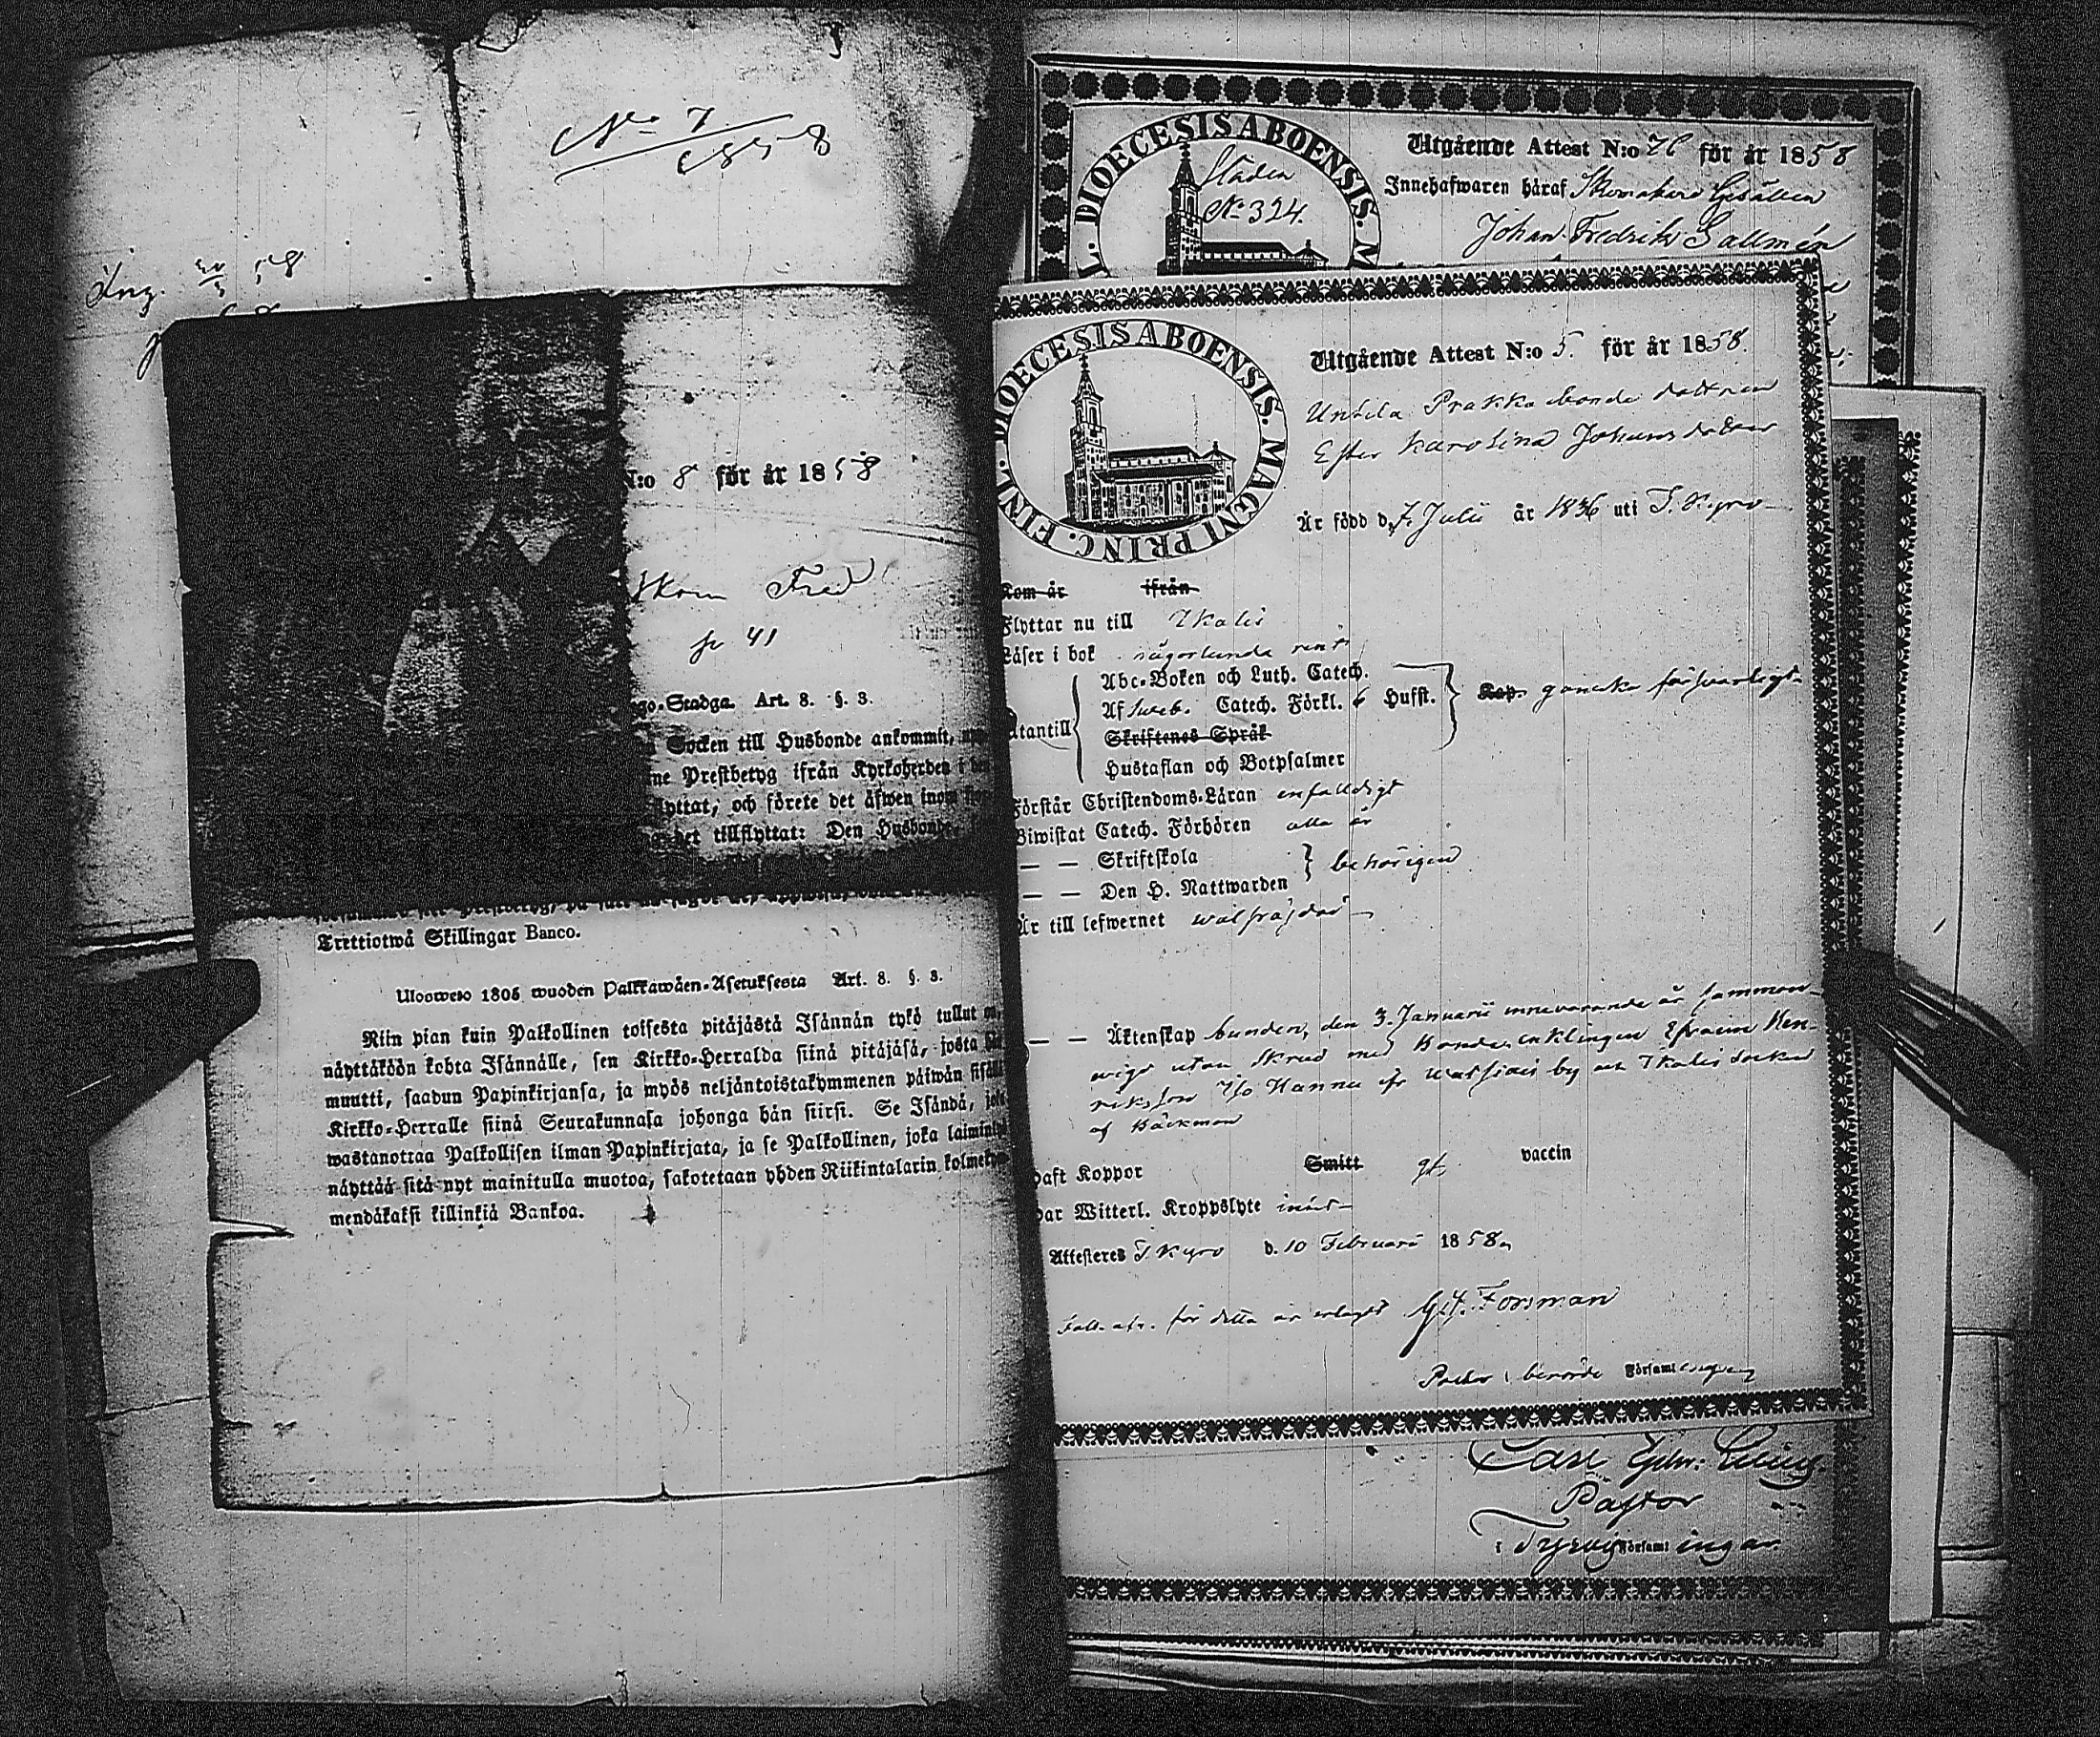 No 7
1858
Ing. 58
N:o 8 för år 1858
Skom Fred
sr 41
go-Stadga. Art. 8. §. 3.
Socken till Husbonde ankommit,
ne Prestbetyg ifrån Kyrkoherden i
lyttat, och förete det äfwen inom
het tillflyttat: Den Husbonde,
Trettiotwå Skillingar Banco.
Uloswedo 1805 wuoden Palkkawäen-Asetuksesta Art. 8. §. 3.
Niin pian kuin Palkollinen toisesta pitäjästä Isännän tykö tullut on,
näyttäköön kohta Isännälle, sen Kirkko-Herralda siinä pitäjäsä, josta hän
muutti, saadun Papinkirjansa, ja myös neljäntoistakymmenen päiwän sisällä
Kirkko-Herralle siinä Seurakunnasa johonga hän siirsi. Se Isändä, joka
wastanottaa Palkollisen ilman Papinkirjata, ja se Palkollinen, joka laiminlyö
näyttää sitä nyt mainitulla muotoa, sakotetaan yhden Riikintalarin kolmekym-
mendäkaksi killinkiä Bankoa.
DIOECESIS ABOENSIS. M
Staden
No 324.
Utgående Attest N:o 76 för år 1858
Innehafwaren häraf Skomakare Gesällen
Johan Fredrik Sallmén
DIOECESIS ABOENSIS. MAGNI PRINC. FINL.
Utgående Attest N:o 5. för år 1858.
Untila Prakka bonde dottren
Ester Karolina Johans dotter
Är född d. 7. Julii år 1836 uti T. Kyro
Kom år ifrån
Flyttar nu till Ikalis
Läser i bok någorlunda rent
Abc-Boken och Luth. Catech.
Utantill Af Sveb. Catech. Förkl. 6 Hufst. Kap. ganska försvarligt
Skriftenes Språk
Hustaflan och Botpsalmer
Förstår Christendoms-Läran enfaldigt
Biwistat Catech. Förhören alla år
— — Skriftskola
— — Den H. Nattwarden behörigen
Är till lefwernet wälfräjdad
— — Äktenskap bunden, den 3. Januarii innevarande år samman-
wigd utan skrud med Bonde enklingen Efraim Hen-
riksson Hannu fr by och Ikalis socken
af Bäckman
Haft Koppor Smitt gt. vaccin
Har Witterl. Kroppslyte intet
Attesteres T Kyro d. 10 Februarii 1858.
för detta är erlagd G. F. Forsman
Pastor i berörde Församlingen
Carl
Pastor
i Tyrvis Församlingar